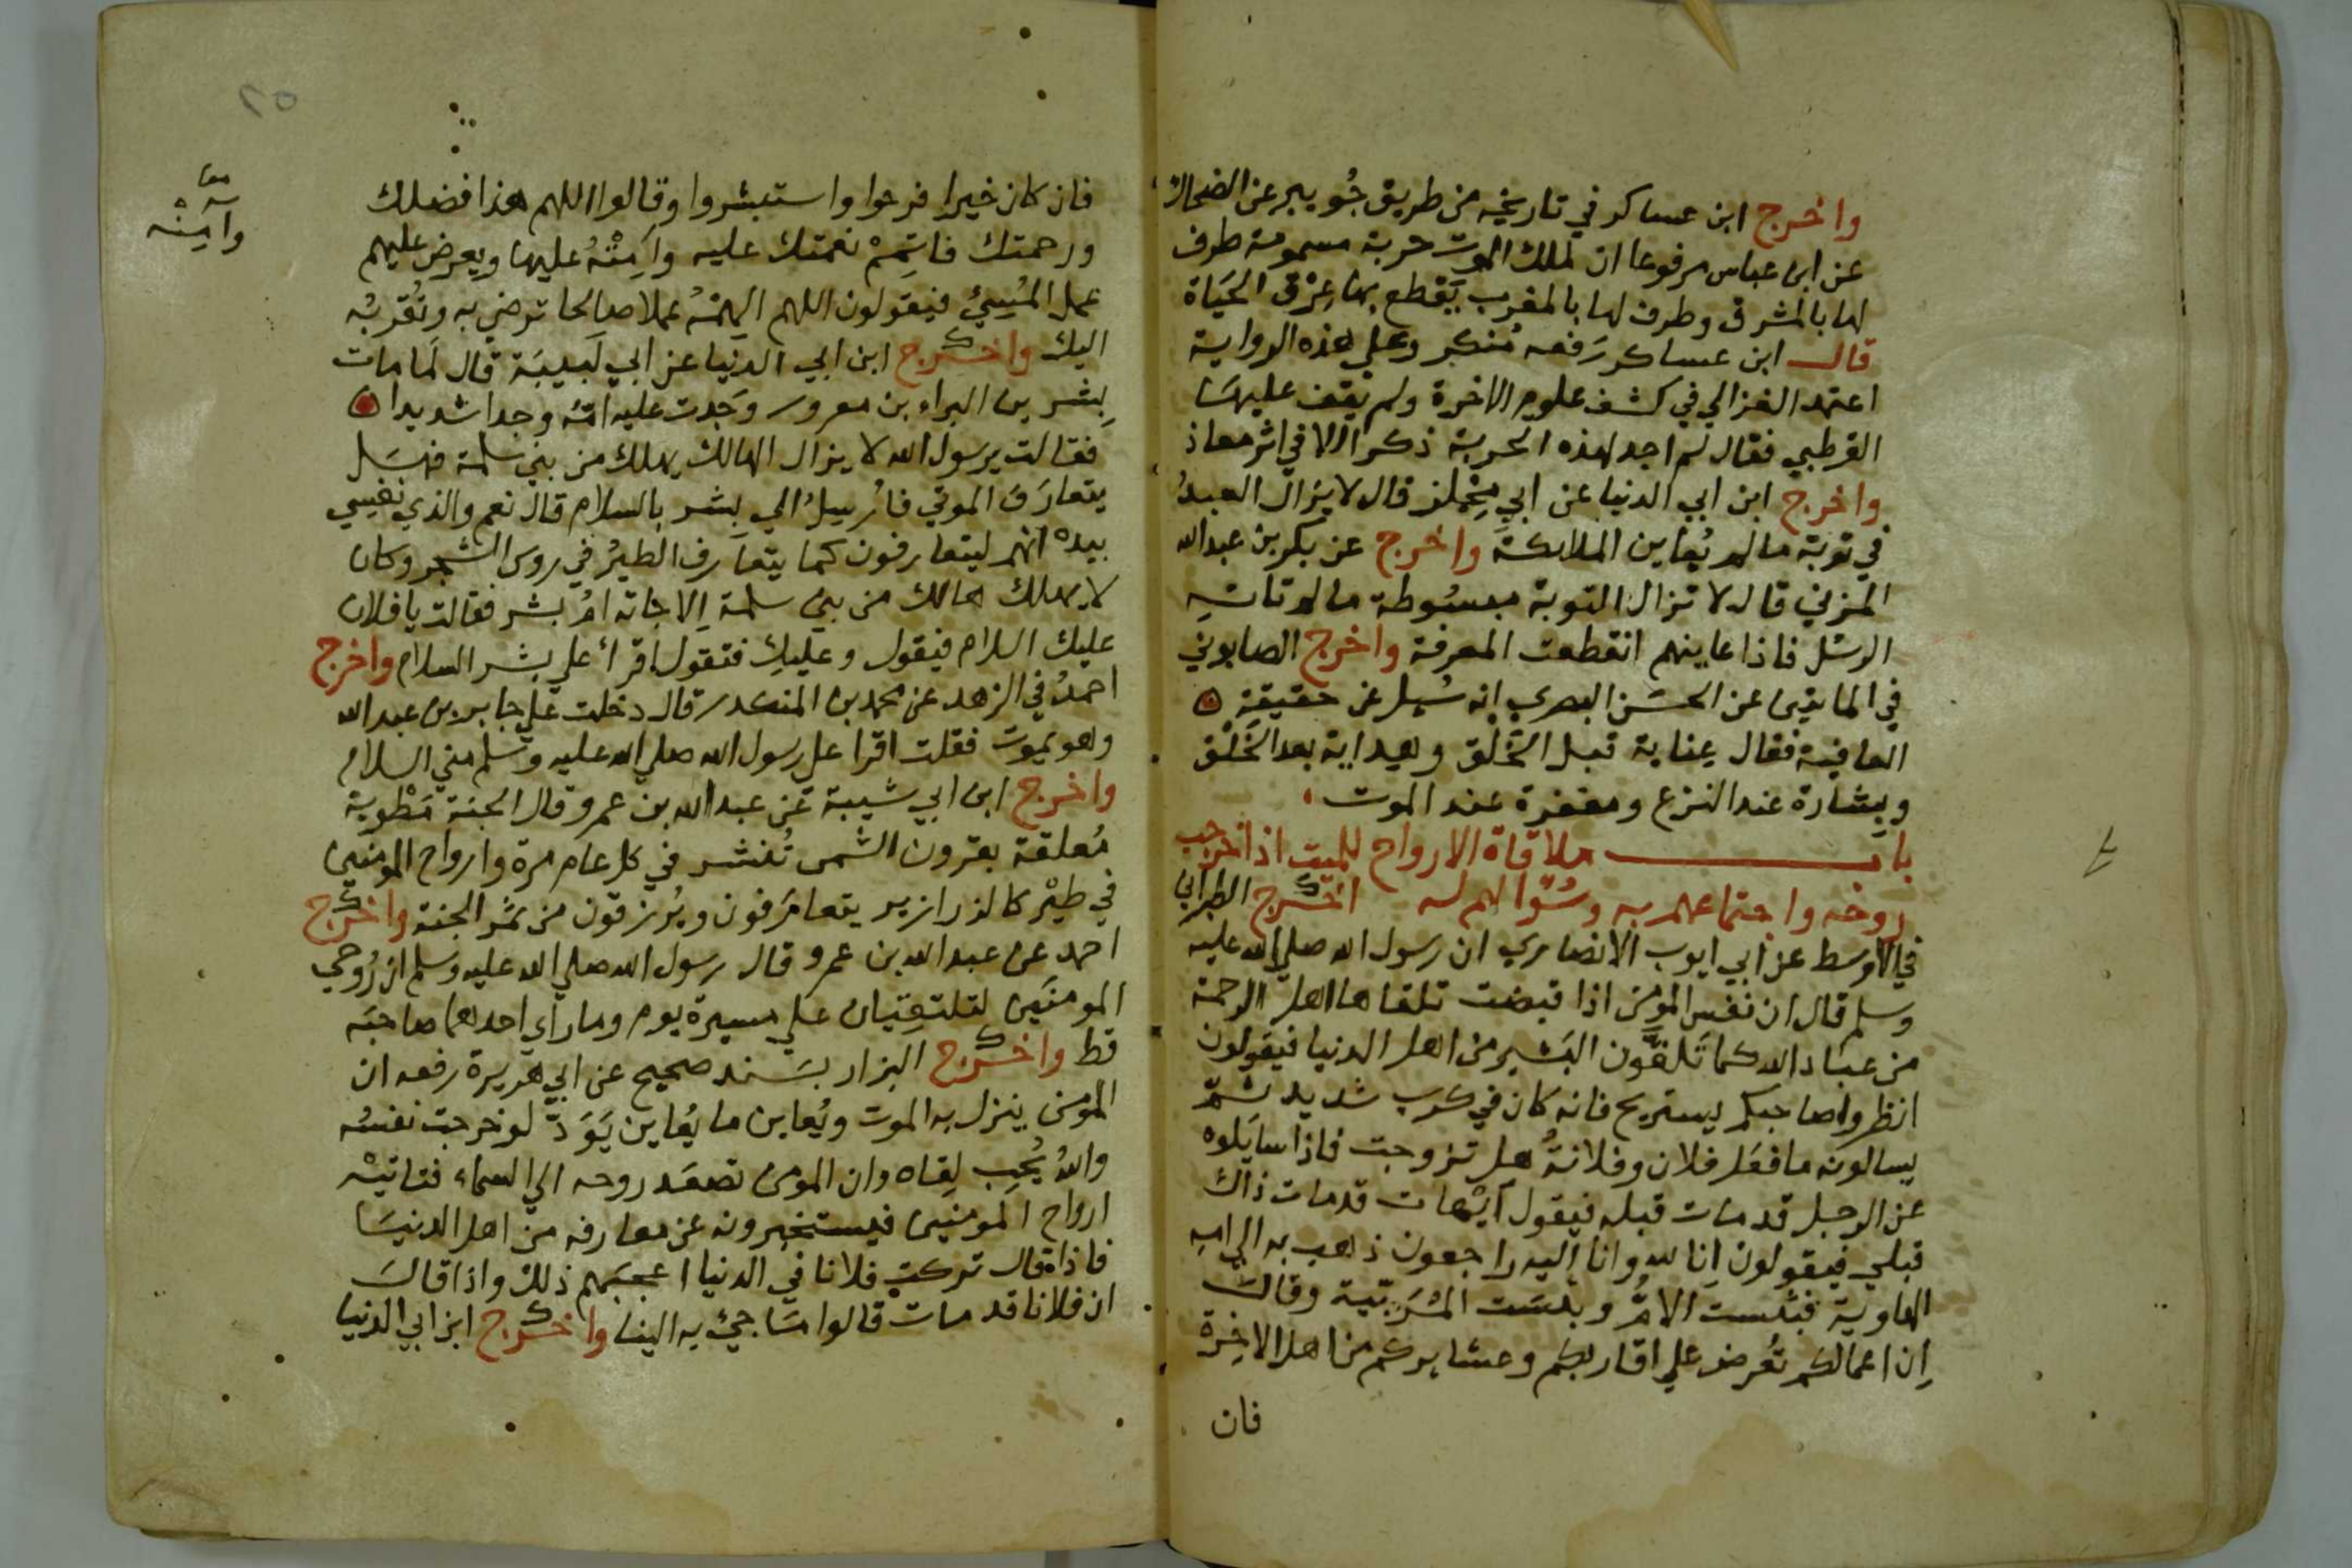 واخرج ابن عساكر في تاريخه من طريق جُويبر عن الضحاك
عن ابن عباس مرفوعا ان لملك الموت حربة مسمومة طرف
لها بالمشرق وطرف لها بالمغرب يَقطع بها عِرْق الحَيَاة
قال ابن عساكر رَفعه مُنكر وعلي هذه الرواية
اعتمد الغزالي في كشف علوم الاخرة ولم يقف عليهَا
القرطبي فقال لم اجد لهذه الحربة ذكرا الا في اثر معاذ
واخرج ابن ابي الدنيا عن ابي مِجْلز قال لا يزال العبدُ
في توبة ما لم يُعاين الملائكة واخرج عن بكر بن عبدالله
المزني قال لا تزال التوبة مبسُوطة ما لم تاته
الرسُل فاذا عاينهم انقطعت المعرفة واخرج الصابوني
في المايتين عن الحسَن البصري انه سُيل عن حقيقة
العافية فقال عِناية قبل الخَلق وهِداية بعد الخَلْق
وبِشارة عند النزع ومغفرة عند الموت
باب ملاقاة الارواح للميت اذا خرجت
روحه واجتماعهم به وسُوالهم له اخرج الطبراني
في الاوسط عن ابي ايوب الانصاري ان رسول الله صلي الله عليه
وسلم قال ان نفس المومن اذا قبضت تلقاها اهل الرحمة
من عبَاد الله كما تَلقَّون البَشير من اهل الدنيا فيقولون
انظروا صاحبكم يستريح فانه كان في كرب شديد ثمّ
يسالونه ما فعَل فلان وفلانةُ هل تزوجت فاذا سايَلوه
عن الرجل قد مات قبله فيقول ايْهات قد مات ذاك
قبلي فيقولون اِنا لله وانا اليه راجعون ذهب به الي امه
الهاوية فبئست الامُّ وبئسَت المُرَبّيَة وقالَ
اِن اعمالكم تُعرض علي اقاربكم وعشايركم من اهل الاخِرة
فان
فان كان خيرا فرحوا واستبشروا وقالوا اللهم هذا فضلك
ورحمتك فاتمِمْ نعمتك عليه وامِتْهُ عليها ويعرض عليهم
عمل المُسِيئ فيقولون اللهم الهِمْهُ عملا صالحا ترضي به وتُقربُه
اليك واخرج ابن ابي الدنيا عن ابي لَبيبَة قال لَما مات
بِشر بن البراء بن معرور وَجدت عليه امّه وجدا شديدا
فقالت يرسول الله لا يزال الهالك يهلك من بني سلمة فهَل
يتعارَف الموتي فاُرسِلُ الي بشر بالسلام قال نعم والذي نفيسي
بيده انهم ليتعارفون كما يتعَارف الطيرُ في روس الشجر وكان
لا يهلك هالك من بني سلمة اِلا جاته امُ بشر فقالت يا فلان
عليك السلام فيقول وعليكِ فتقول اقرأ علي بشر السلام واخرج
احمدُ في الزهد عن محمد بن المنكدر قال دخلت علي جابر بن عبدالله
وهو يموت فقلت اقرا علي رسول الله صلي الله عليه وسلم مني السلام
واخرج ابن ابي شيبة عن عبدالله بن عمرو قال الجنة مَطْوية
مُعلقة بقرون الشمس تُنشر في كل عام مرة وارواح المومنين
في طيْر كالزرازير يتعارَفون ويُرزقون من ثمَر الجنة واخرج
احمد عن عبدالله بن عمرو قال رسول الله صلي الله عليه وسلم ان رُوحي
المومنَين لتلتقِيان علي مسيرة يوم وما رأي احدهما صاحبَه
قط واخرج البزار بسَند صحيح عن ابي هريرة رفعه ان
المومن ينزل به الموت ويُعاين ما يُعاين يَوَدّ لو خرجت نفسُه
واللهُ يُحِب لِقاه وان المومن تصعَد روحه الي السماء فتاتيْه
ارواح المومنين فيستخبرونه عن معارفه من اهل الدنيَا
فاذا قال تركت فلانا في الدنيا اعجبَهم ذلك واذا قالَ
ان فلانا قد مات قالوا مَا جئ به الينا واخرج ابن ابي الدنيا
معا
وامِتْه
٢٥